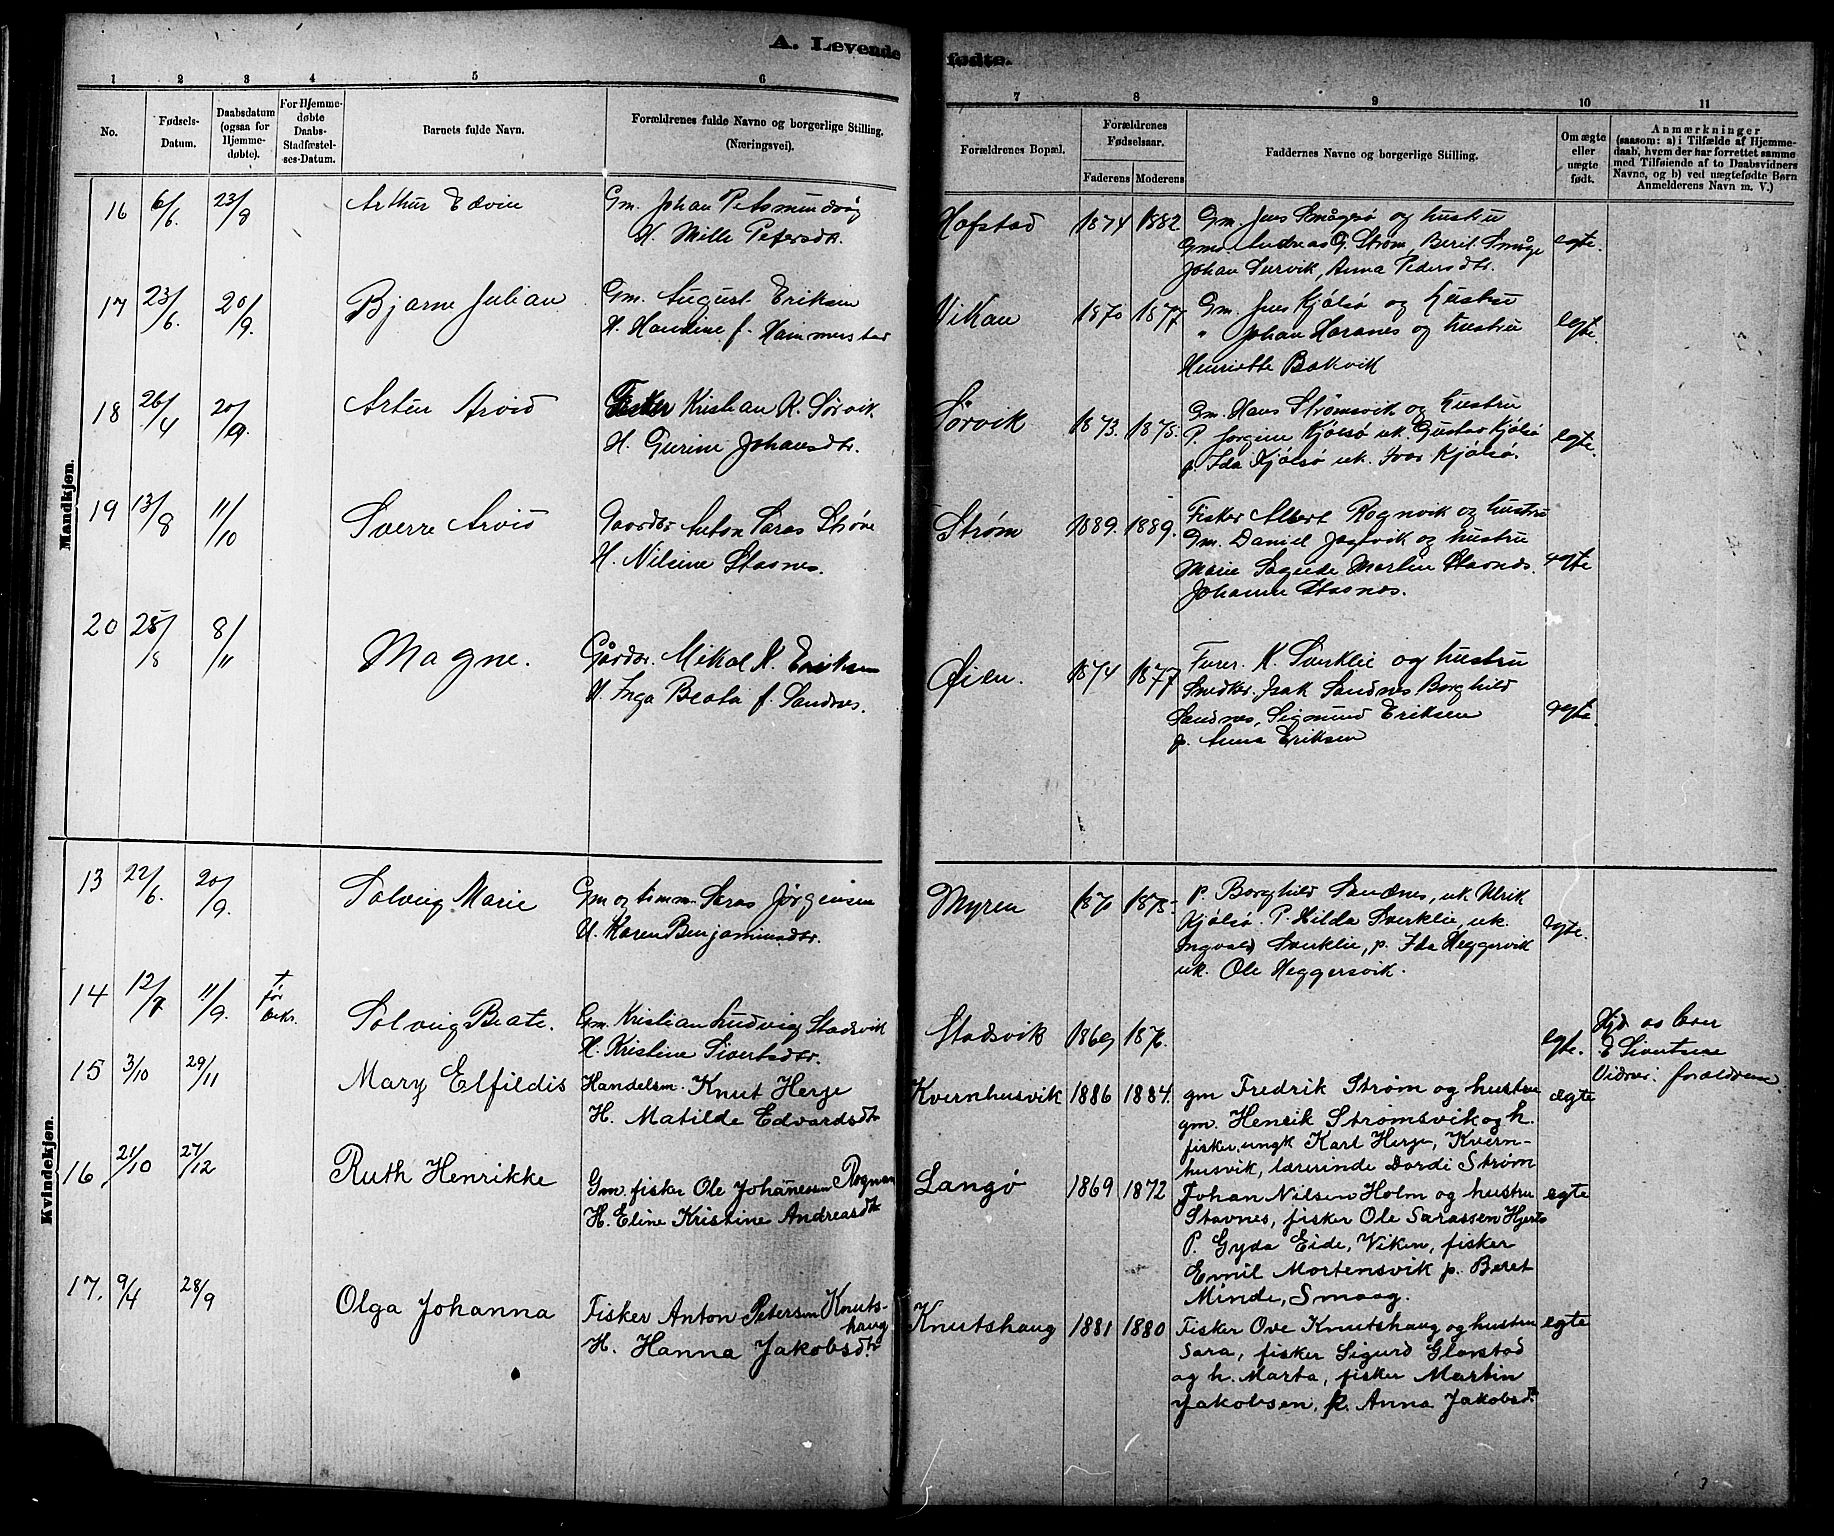 A. Levende fødte.
1 2 3 4 5 6 7 8 9 10 11
No.
Fødsels-Datum.
Daabsdatum (ogsaa for Hjemme-døbte).
For Hjemme-døbte Daabs-Stadfæstel-ses-Datum.
Barnets fulde Navn.
Forældrenes fulde Navne og borgerlige Stilling. (Næringsvei).
Forældrenes Bopæl.
Forældrenes Fødselsaar.
Faderens Moderens
Faddernes Navne og borgerlige Stilling.
Om ægte eller uægte født.
Anmærkninger
(saasom: a) i Tilfælde af Hjemme-
daab, hvem der har forrettet samme
med Tilføiende af to Daabsvidners
Navne, og b) ved uægtefødte Børn
Anmelderens Navn m. V.)
Mandkjøn.
16 6/6. 23/8 Arthur Edvin Gm. Johan
H. Mille Petersdtr.
Hofstad 1874 1882 Gm. Jens Smågesø og hustru
Andreas G. Strøm, Berit Småge
Johan Survik, Anna Pedersdtr.
egte.
17 23/6. 20/9. Bjarne Julian Gm. August Eriksen
H. Handine f. Hammerstad
Vikan 1870 1877 Gm. Jens Kjølsø og hustru
" Johan Haranes og hustru
Henriette Bakvik
egte.
18 26/4 20/9. Arten Arvid Fisker Kristian K. Sørvik
H. Gurine Johansdtr.
Sørvik 1873. 1875. Gm. Hans Strømsvik og hustru
P. Jorgine Kjølsø uk. Gustav Kjølsø
p. Ida Kjølsø uk. Ivar Kjølsø.
egte.
19 13/8 11/10 Sverre Arvid Gaardbr Anton Saras Strøm
H. Nilsine Stavnes.
Strøm 1889. 1889. Fisker Albert Rognvik og hustru
Gm. Daniel Jagtvik og hustru
Marie Martin Stavnes.
Johanna Stavnes.
egte
20 25/8 8/11 Magne. Gårdbr. Mikal K. Eriksen
H. Inga Beata f. Sandnes.
Øien. 1874 1877 Furer. K. Sverklie og hustru
Snedker. Isak Sandnes Borghild
Sandnes, Sigmund Eriksen
p. Anna Eriksen
egte.
Kvindekjøn.
13 22/6. 20/9. Solveig Marie Gm og tømm. Saras Jørgensen
H. Karen Benjaminsdtr.
Myren 1870 1875. p. Borghild Sandnes, uk Ulrik
Kjølsø. P. Hilda Sverklie, uk.
Ingvald Sverklie, p. Ida Heggersvik
uk. Ole Heggersvik.
egte.
14 12/7 11/9. † før bekr. Solveig Beate. Gm. Kristian Ludvig Stadsvik
H. Kristine Sivertsdtr.
Stadsvik 1869 1876. egte.
Hjd
E Sivertsen
Vidner: forældrene.
15 3/10 29/11 Mary Elfildis Handelsm. Knut Herje
H. Matilde Edvardsdtr
Kvernhusvik 1886 1884. gm Fredrik Strøm og hustru
gm. Henrik Strømsvik og h.
fisker, ungk Karl Herje, Kvern-
husvik, lærerinde Dordi Strøm
ægte
16 21/10 27/12 Ruth Henrikke Gm. fisker Ole Johanessen Rognan
H. Eline Kristine Andreasdtr
Langø 1869 1872 Johan Nilsen Holm og hustru
Stavnes, fisker Ole Sarassen Hjertø
P. Gyda Eide, Viken, fisker
Emil Mortensvik p. Beret
Minde, Smaag.
egte
17. 9/4 28/9 Olga Johanna Fisker Anton Petersen Knuts-
haug
H. Hanna Jakobsdtr
Knutshaug 1881 1880 Fisker Ove Knutshaug og hustru
Sara, fisker Sigurd Glørstad
og h. Marta, fisker Martin
Jakobsen, p. Anna Jakobsdtr
egte